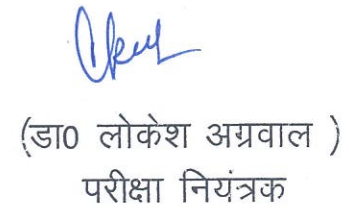 (डा0 लोकेश अग्रवाल )
परीक्षा नियंत्रक